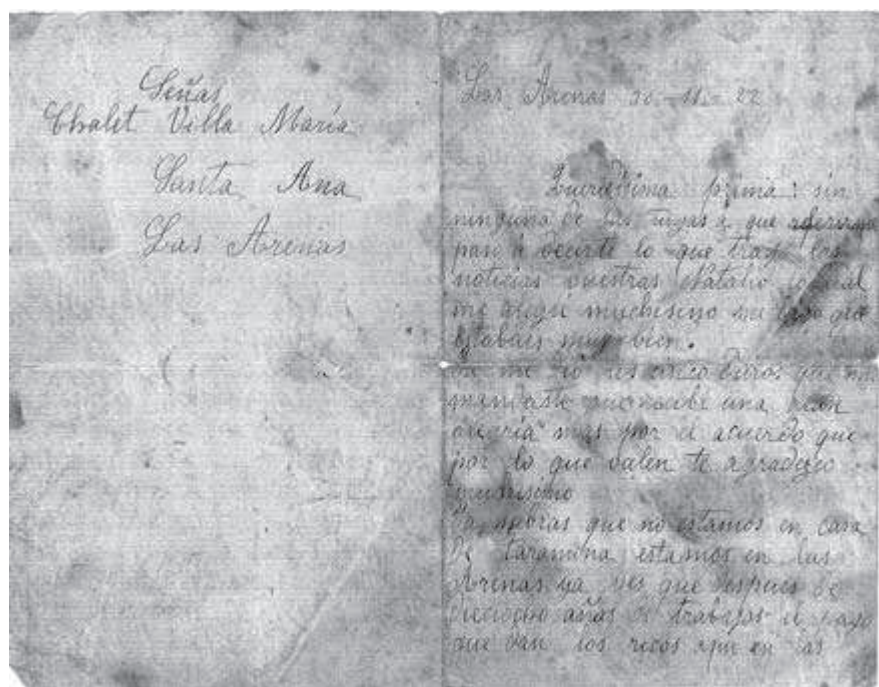 Señas
Chalet Villa María
Santa Ana
Las Arenas
Las Arenas 20-11-22
Queridísima prima: sin
ninguna de las tuyas a que
paso a decirte lo que
noticias vuestras Natalio lo cual
me alegré muchisimo me dijo que
estabais muy bien.
me dió los cinco duros que me
mandaste una gran
alegria mas por el acuerdo que
por lo que valen te agradezco
muchisimo
Ya sabrás que no estamos en casa
de Taramina estamos en Las
Arenas ya ves que despues de
dieciocho años de trabajos el pago
que dan los ricos